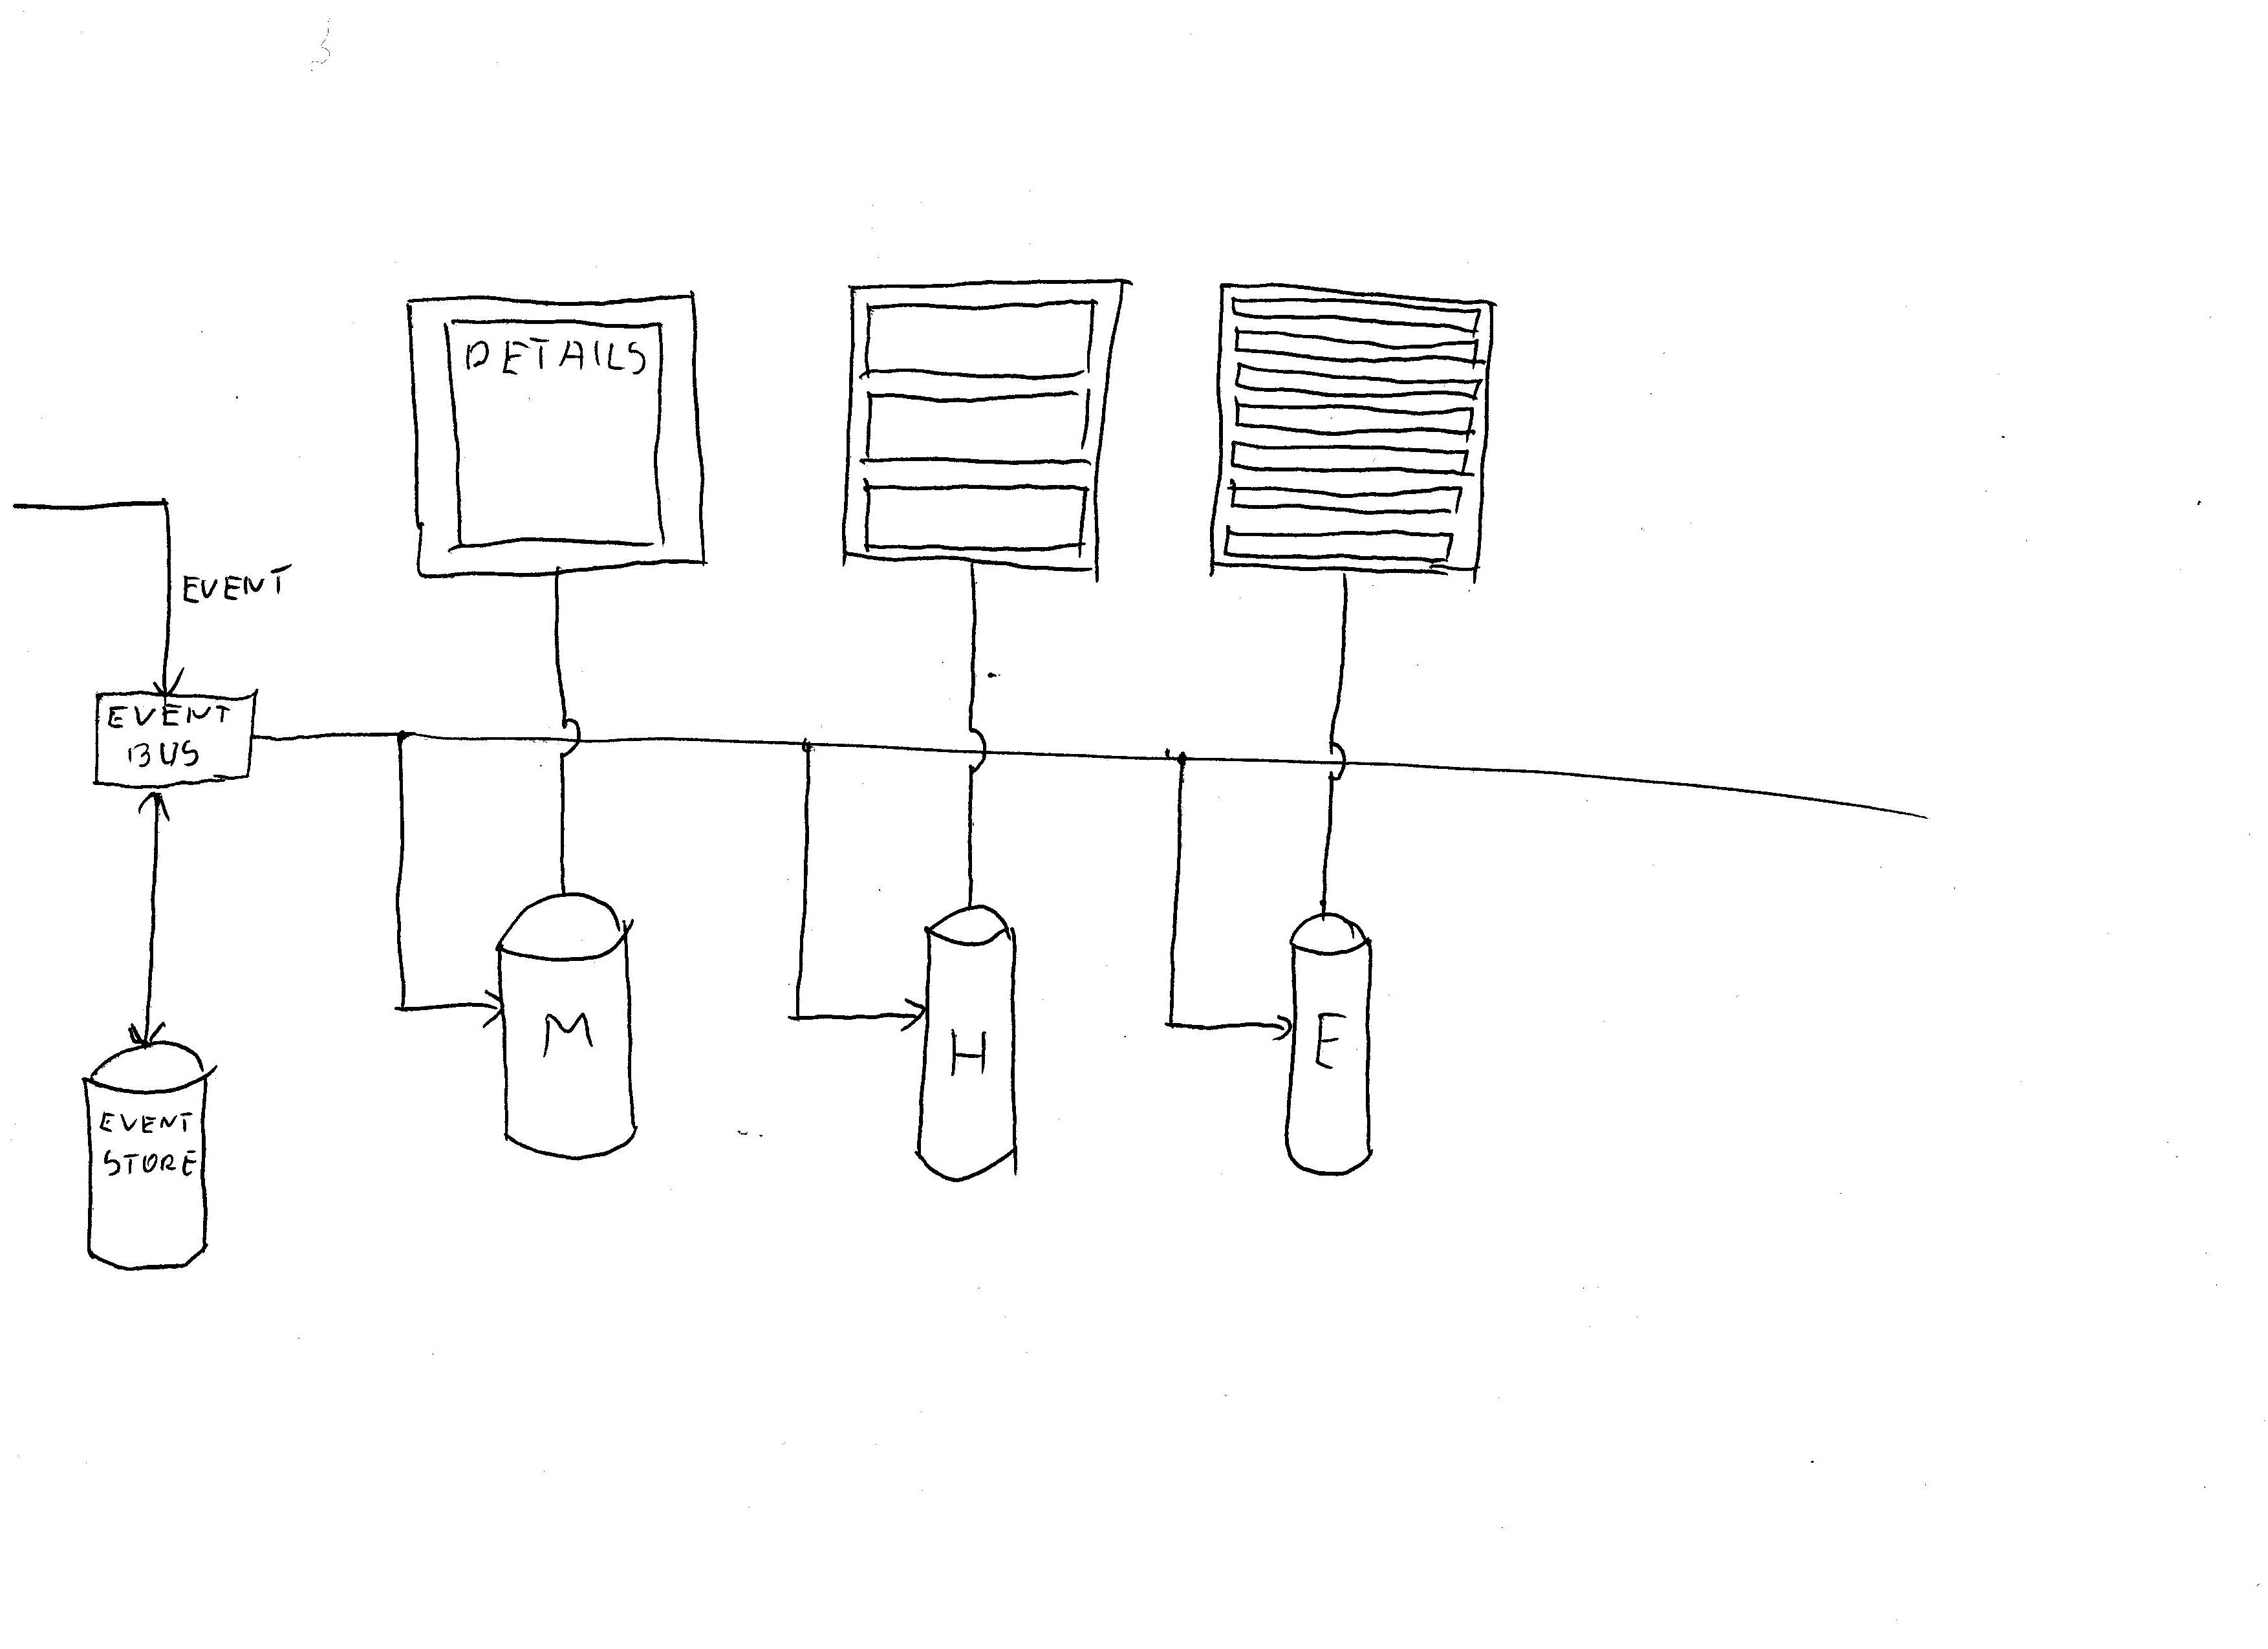 DETAILS
EVENT
EVENT
BUS
M
H
E
EVENT
STORE